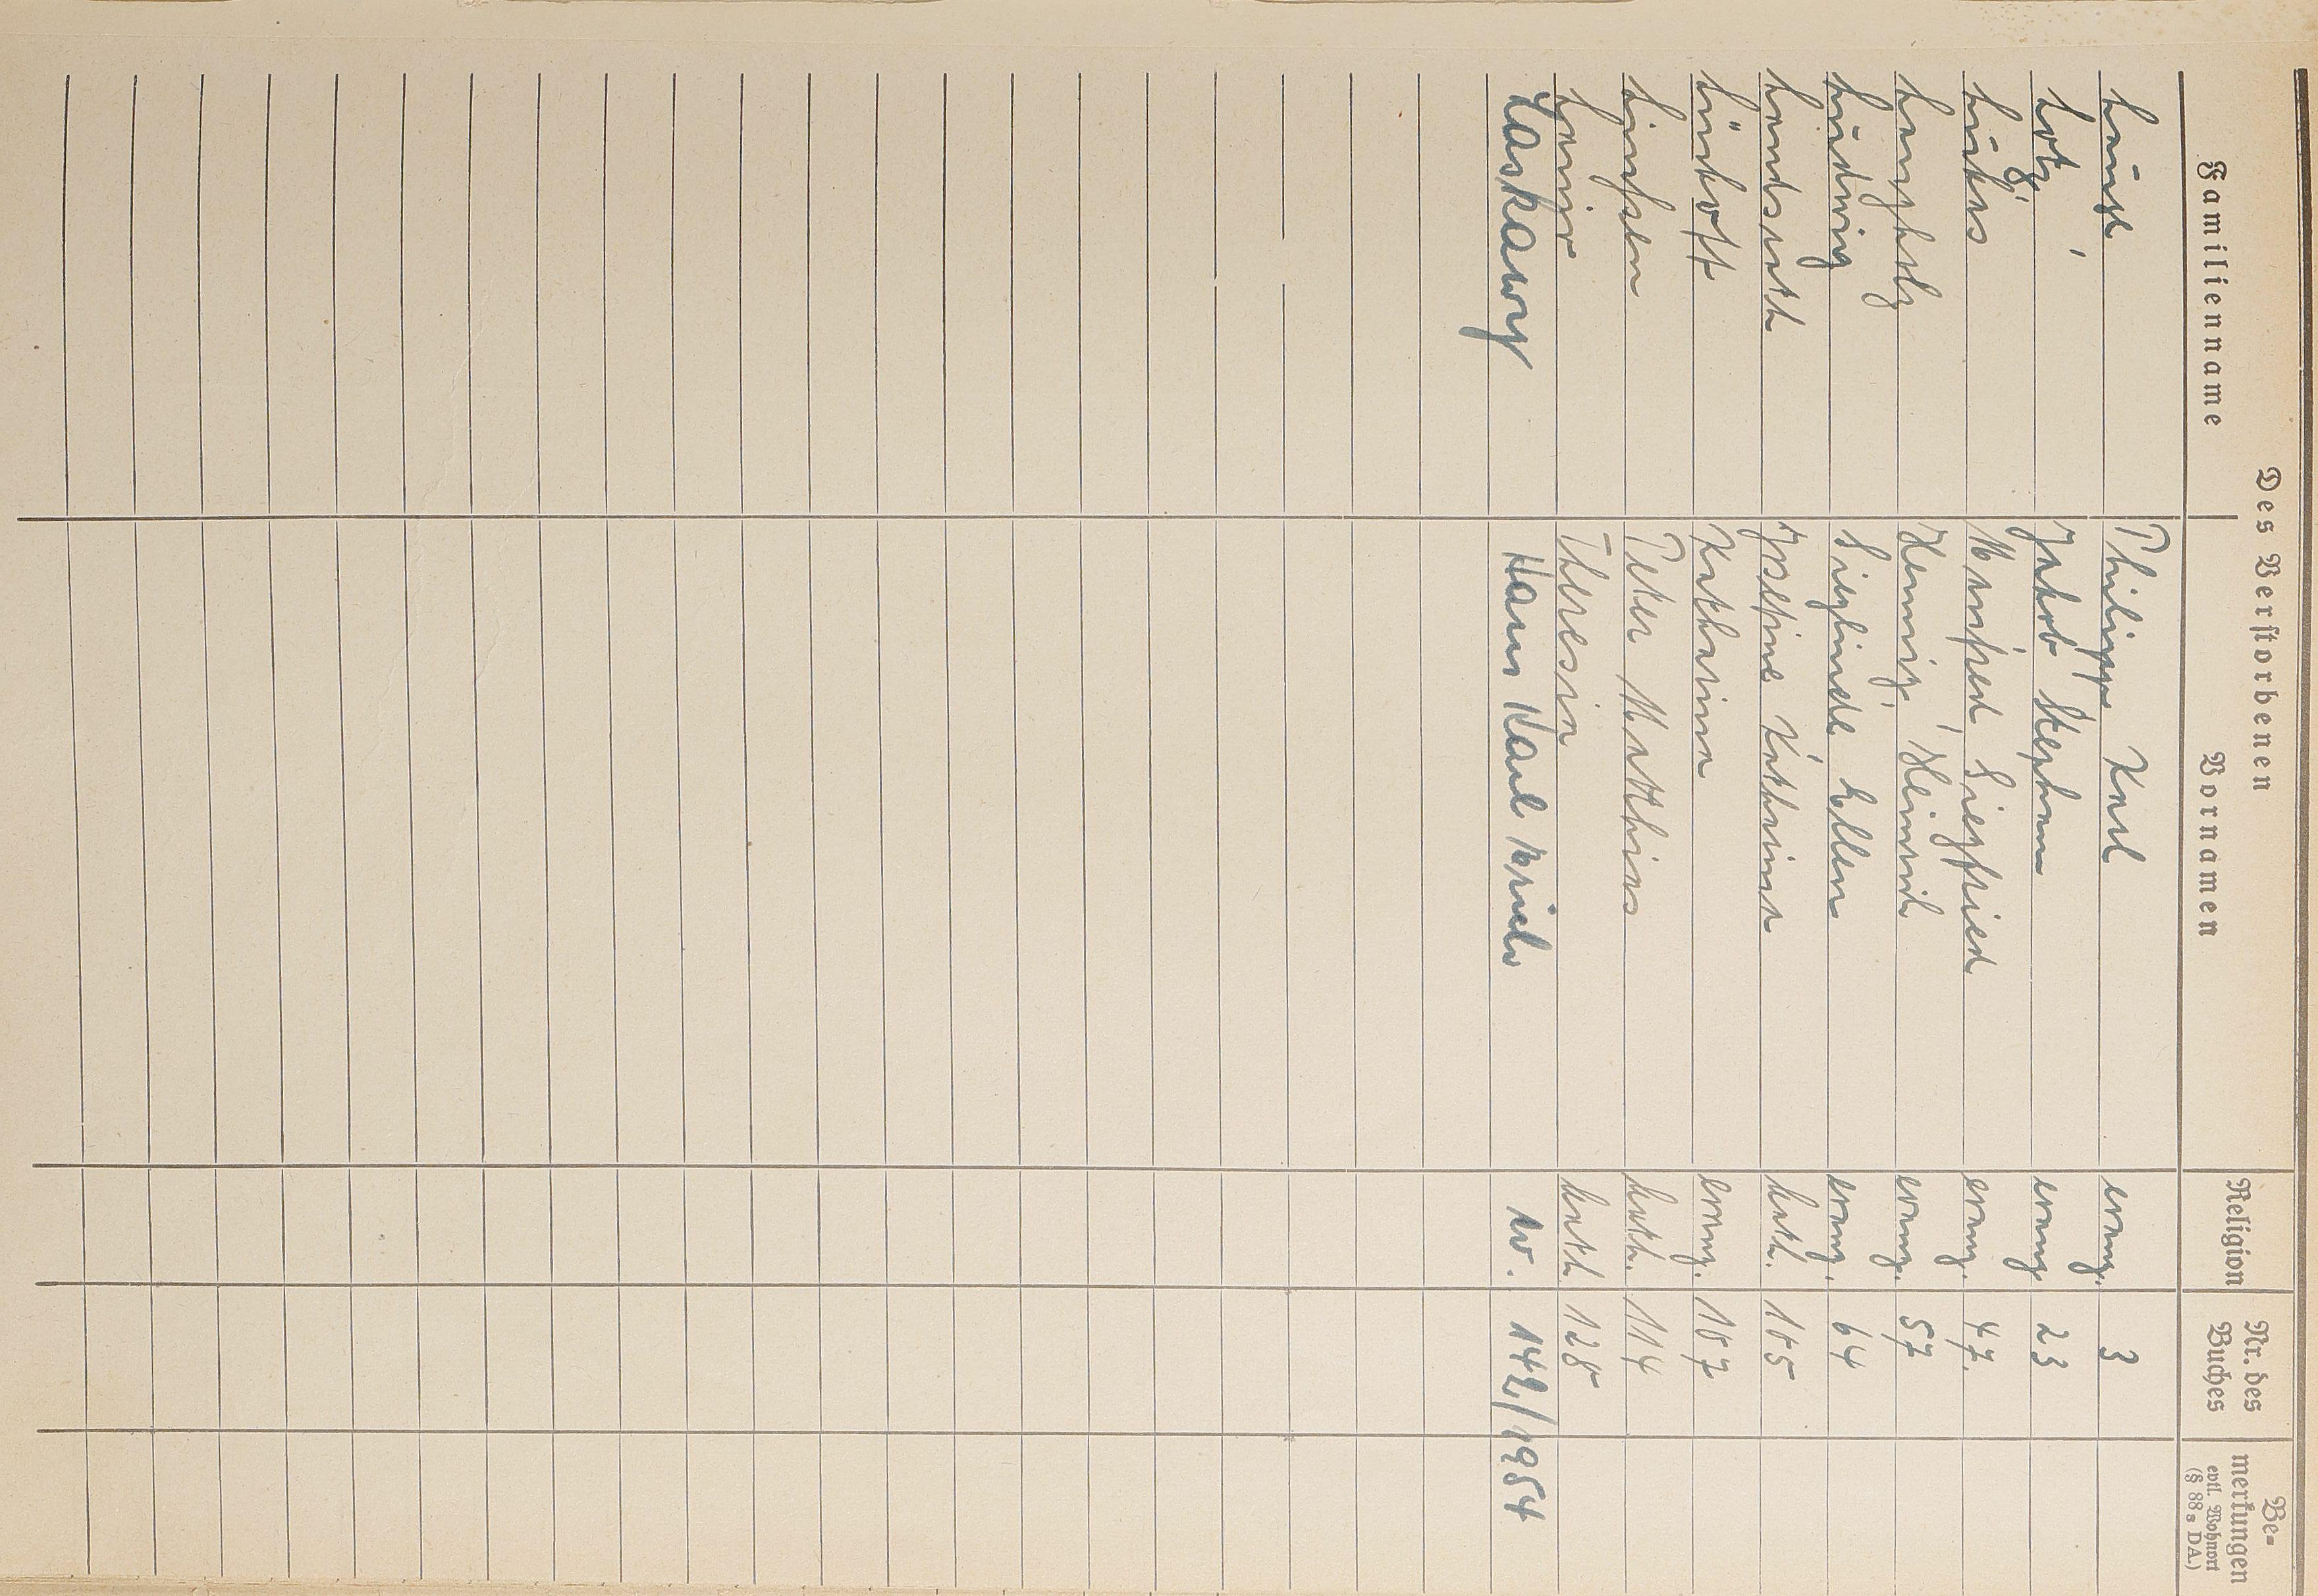 Des Verstorbenen
Familienname Vornamen Religion Nr. des Buches Bemerkungen evtl. Wohnort (§ 88 a DA.)
Philipp Karl evang. 3
Lotz Jakob Stephan evang 23
Lukas Manfred Siegfried evang. 47.
Langholz Hennig, Heinrich evang. 57
Ludwig Sieglinde Ellen evang. 64
Josefine Katharina kath. 105
Lückoff Katharina evang. 107
Linzsen Peter Matthias kath. 114
Lanio Theresia kath 128
Laskawy Hans Karl Erich ev. 142/1954